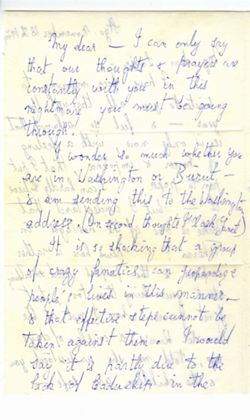 My dear — I can only say
that our thoughts & prayers are
constantly with you in this
nightmare you must be going
through.
I wonder so much whether you
are in Washington or Beirut —
I am sending this to the Washington
address. (On second thoughts
It is so shocking that a group
of crazy fanatics can jeopardise
people's lives in this manner —
& that effective steps cannot be
taken against them — I would
say it is partly due to the
lack of leadership in the